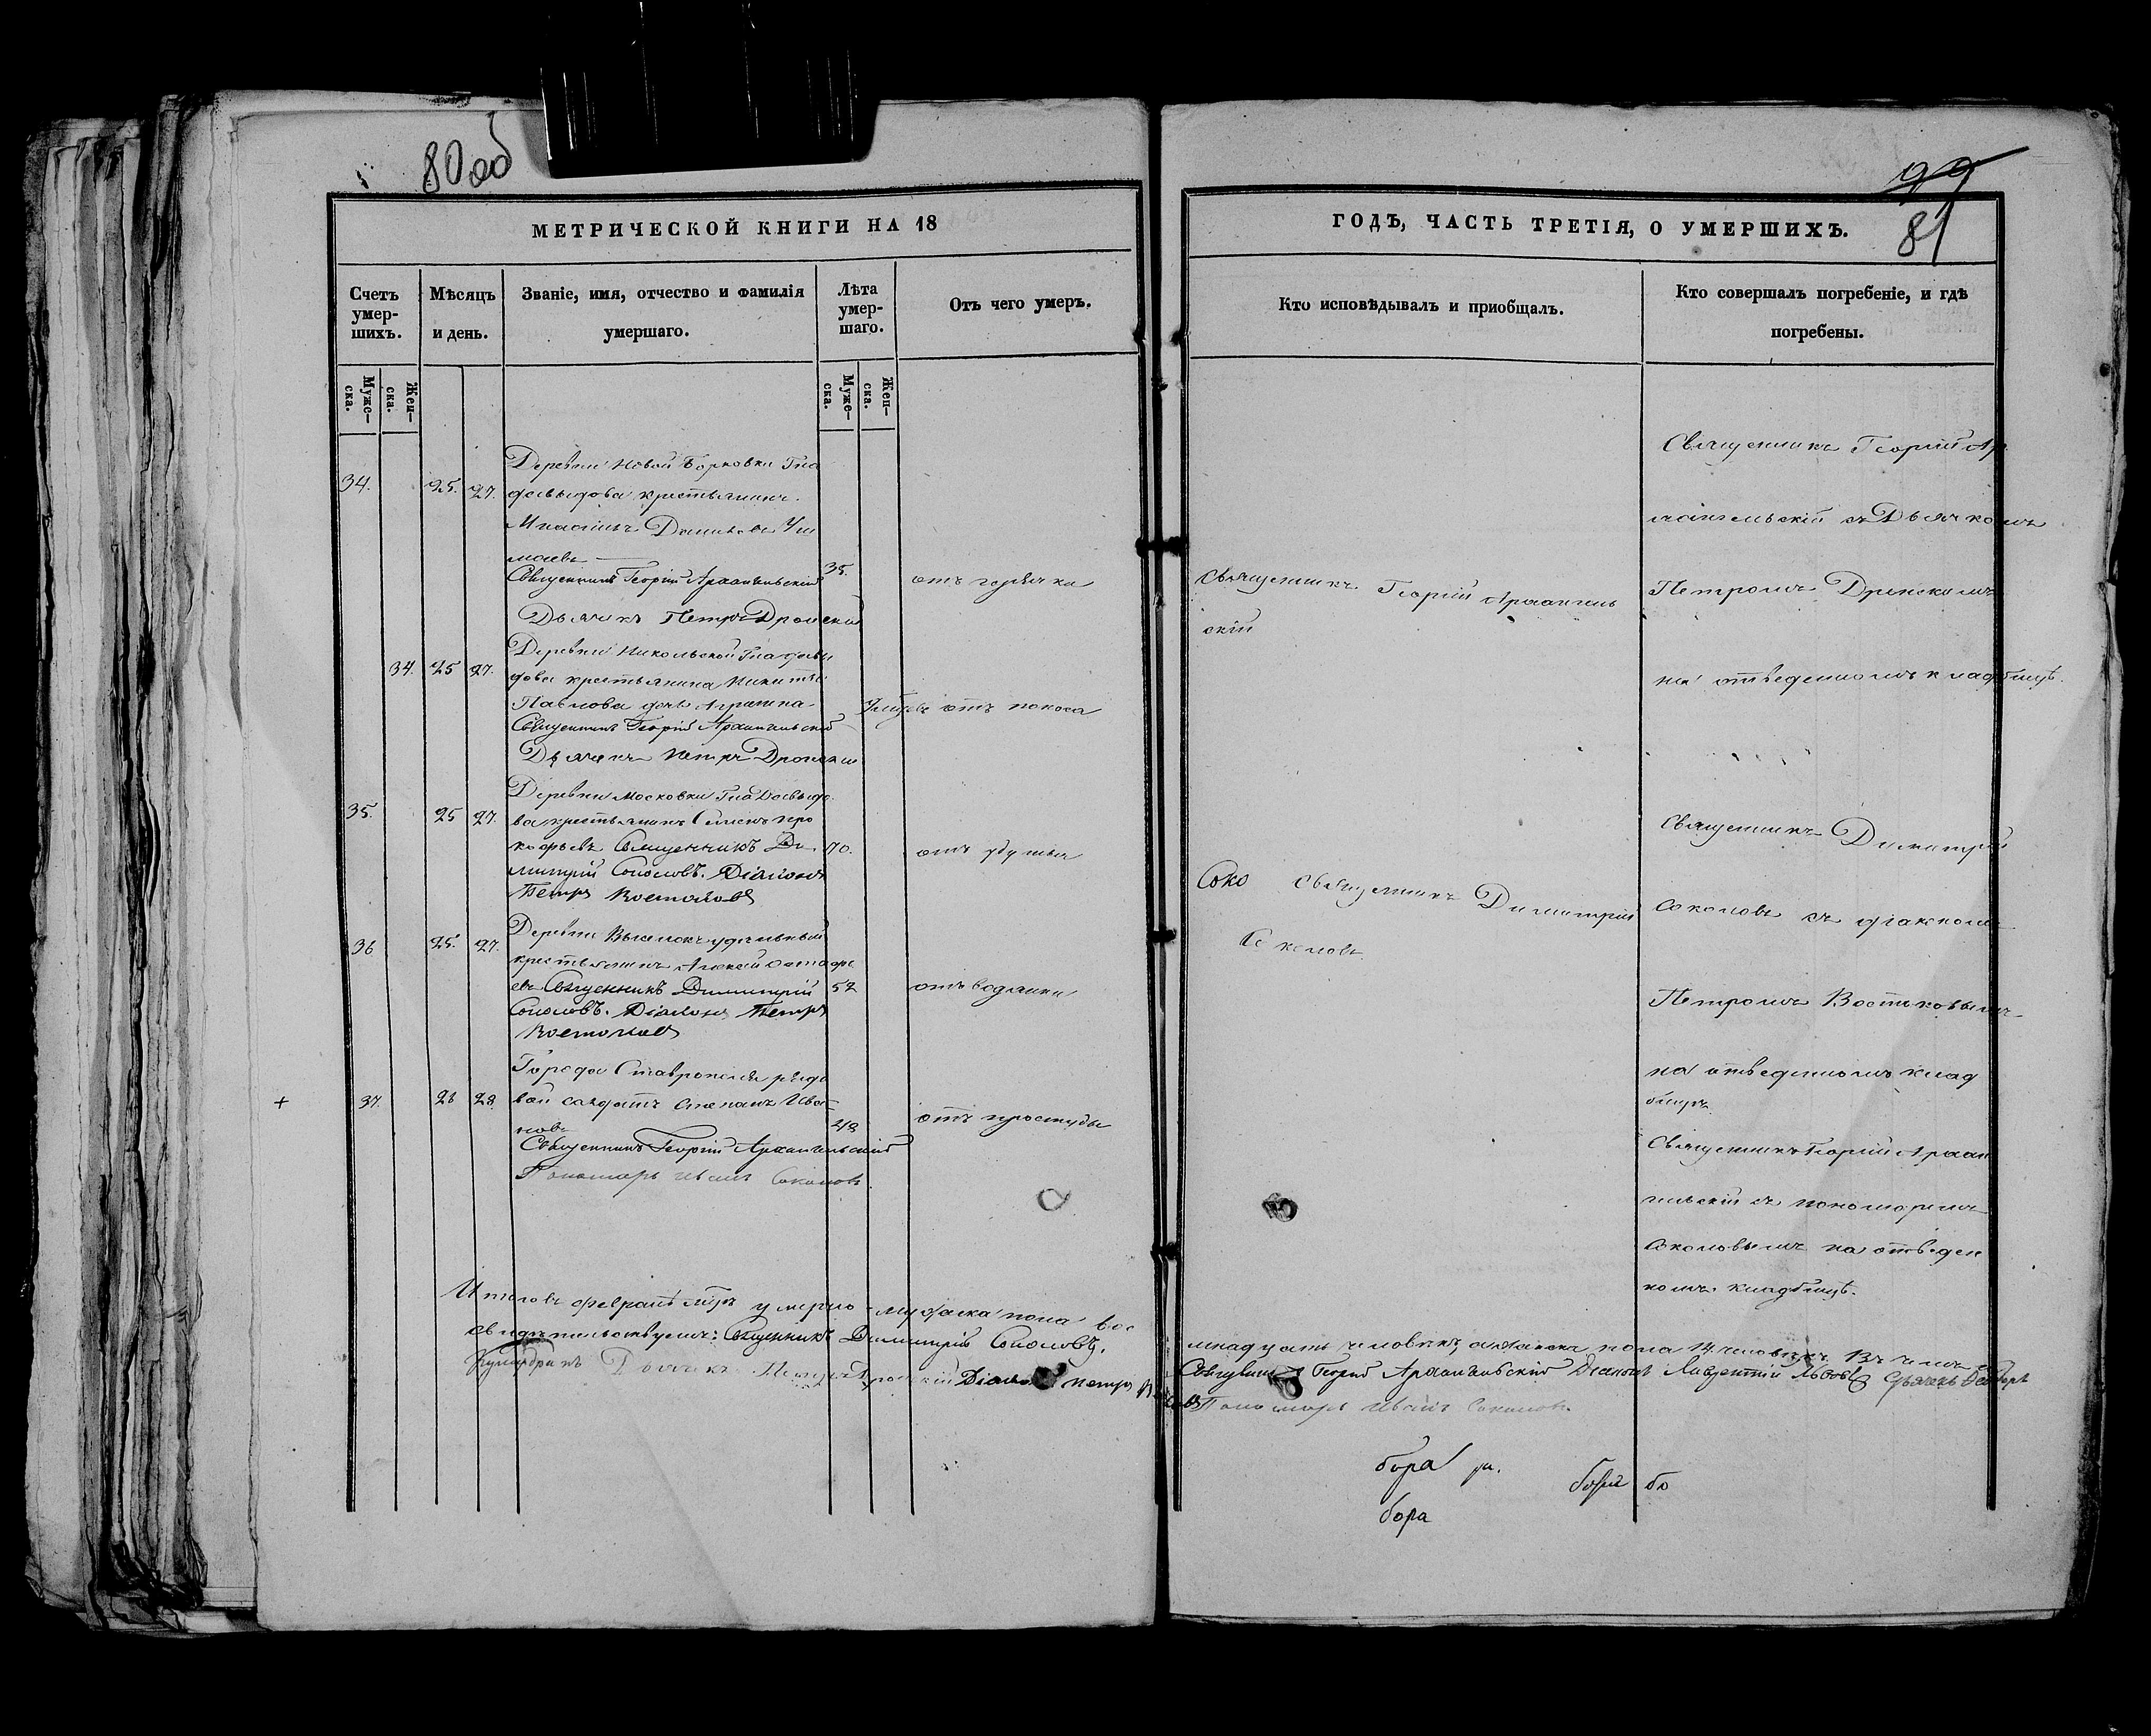 80 об
МЕТРИЧЕСКОЙ КНИГИ НА 18
Счетъ умер-шихъ.
Мѣсяцъ и день.
Званіе, имя, отчество и фамилія умершаго.
Лѣта умер-шаго.
Отъ чего умеръ.
Муже-ска.
Жен-ска.
Муже-ска.
Жен-ска.
34. 25. 27.
Деревни Новой Борковки Гна
Давыдова крестьянинъ
Даниловъ
35. отъ горячки
Священникъ Георгій Архангельскій
Дьячекъ Петръ Дронскій
34. 25 27.
Деревни Никольской Гна Давы
дова крестьянина Никиты
Павлова дочь
отъ поноса
Священникъ Георгій Архангельскій
Дьячекъ Петръ Дронскій
35. 25 27.
Деревни Московки Гна Давыдо
ва крестьянинъ Семенъ Про
кофьевъ Священникъ Ди 70. отъ удушья
митрій Соколовъ. Діаконъ
Петръ Востоковъ
36 25. 27.
Деревни Выселокъ удѣльный
крестьянинъ Алексей
евъ Священникъ Димитрій 52 отъ водянки
Соколовъ. Діаконъ Петръ
Востоковъ
+ 37. 26 28
Города Ставрополя рядо
вой солдатъ Степанъ Ива
новъ 48 отъ простуды
Священникъ Георгій Архангельскій
Пономарь Иванъ Соколовъ.
Итого въ февралѣ мцѣ умерло мужеска пола вос
свидетельствуемъ: Священникъ Димитрій Соколовъ.
Дьячекъ Петръ Дронскій Діаконъ Петръ
99
81
ГОДЪ, ЧАСТЬ ТРЕТІЯ, О УМЕРШИХЪ.
Кто исповѣдывалъ и пріобщалъ.
Кто совершалъ погребеніе, и гдѣ погребены.
Священникъ Георгій Архангель
скій
Соко Священникъ Димитрій
Соколовъ
Священникъ Георгій Ар
хангельскій съ Дьячкомъ
Петромъ Дронскимъ
на отведенномъ кладбищѣ.
Священникъ Димитрій
Соколовъ съ діакономъ
Петромъ Востоковымъ
на отведенномъ клад
бищѣ
Священникъ Георгій Архан
гельскій съ пономаремъ
Соколовымъ на отведен
номъ кладбищѣ.
мнадцать человѣкъ, а женска пола 14 человѣкъ. Въ чемъ
Священникъ Георгій Архангельскій Діаконъ Лаврентій Львовъ
Пономарь Иванъ Соколовъ.
бора
бо
бора